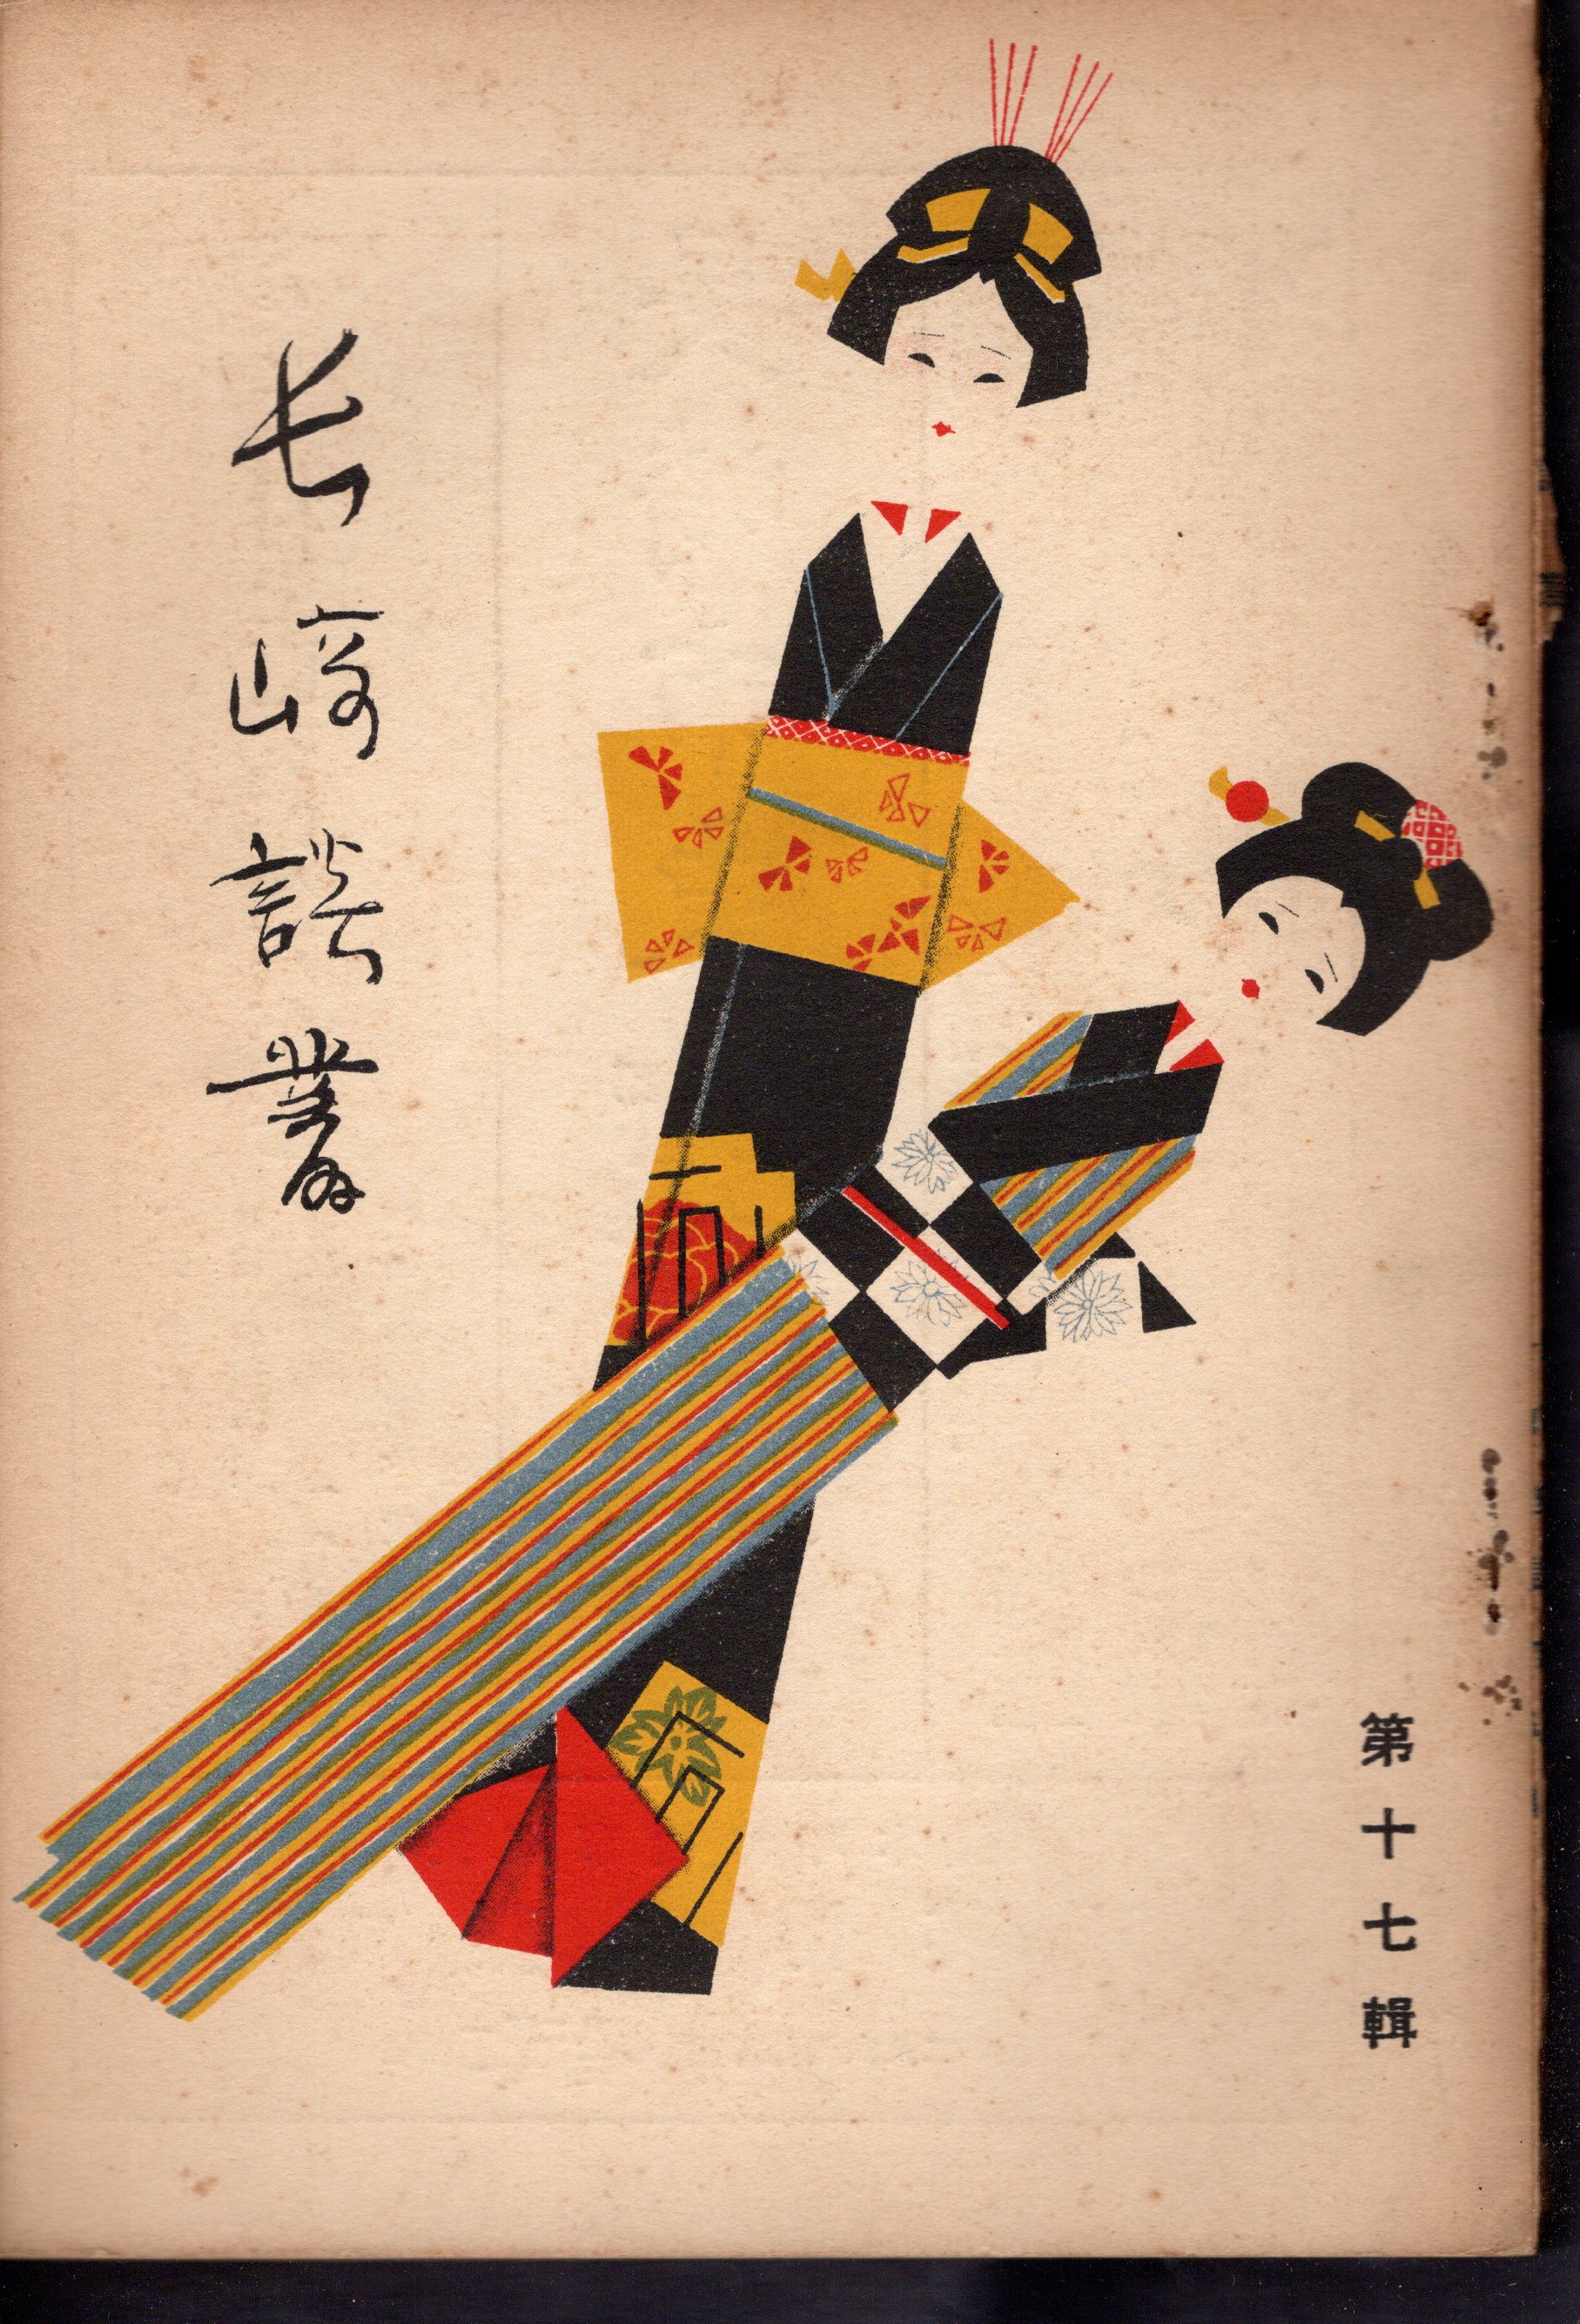 長崎談叢
第十七輯